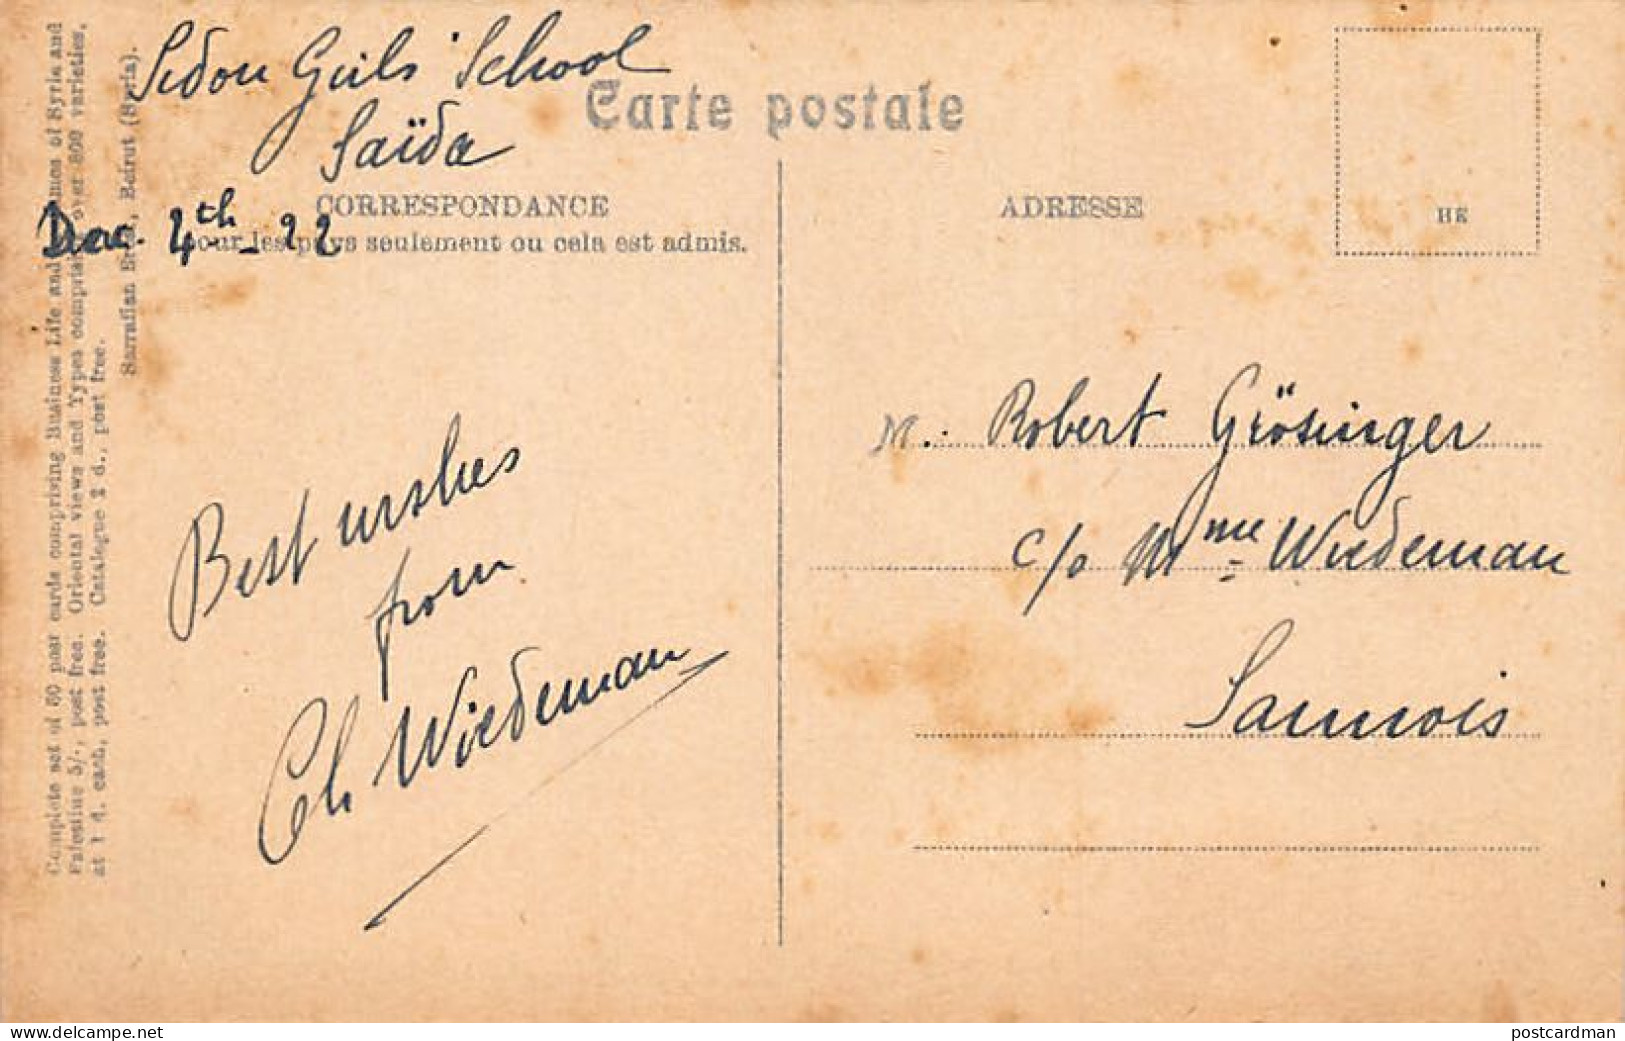 Sidon Girls' School
Saïda
Dec. 4th - 22
Carte postale
CORRESPONDANCE
pour les pays seulement ou cela est admis.
ADRESSE
HE
Best wishes
from
Ch Wiedeman
M. Robert Grösinger
c/o Mme Wiedeman
Sannois
Complete set of 60 post cards comprising Business Life and of Syria and
Palestine 5/-, post free. Oriental views and Types over 800 varieties,
at 1 d. each, post free. Catalogue 2 d., post free.
Sarrafian Bros, Beirut (Syria).
delcampe.net
postcardman